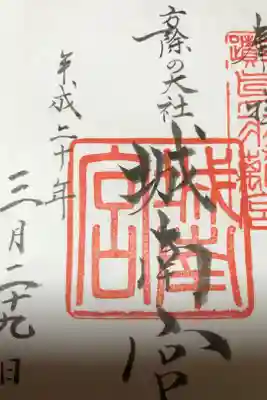 方除の大社
城南宮
城南宮
平成二十年
三月二十九日